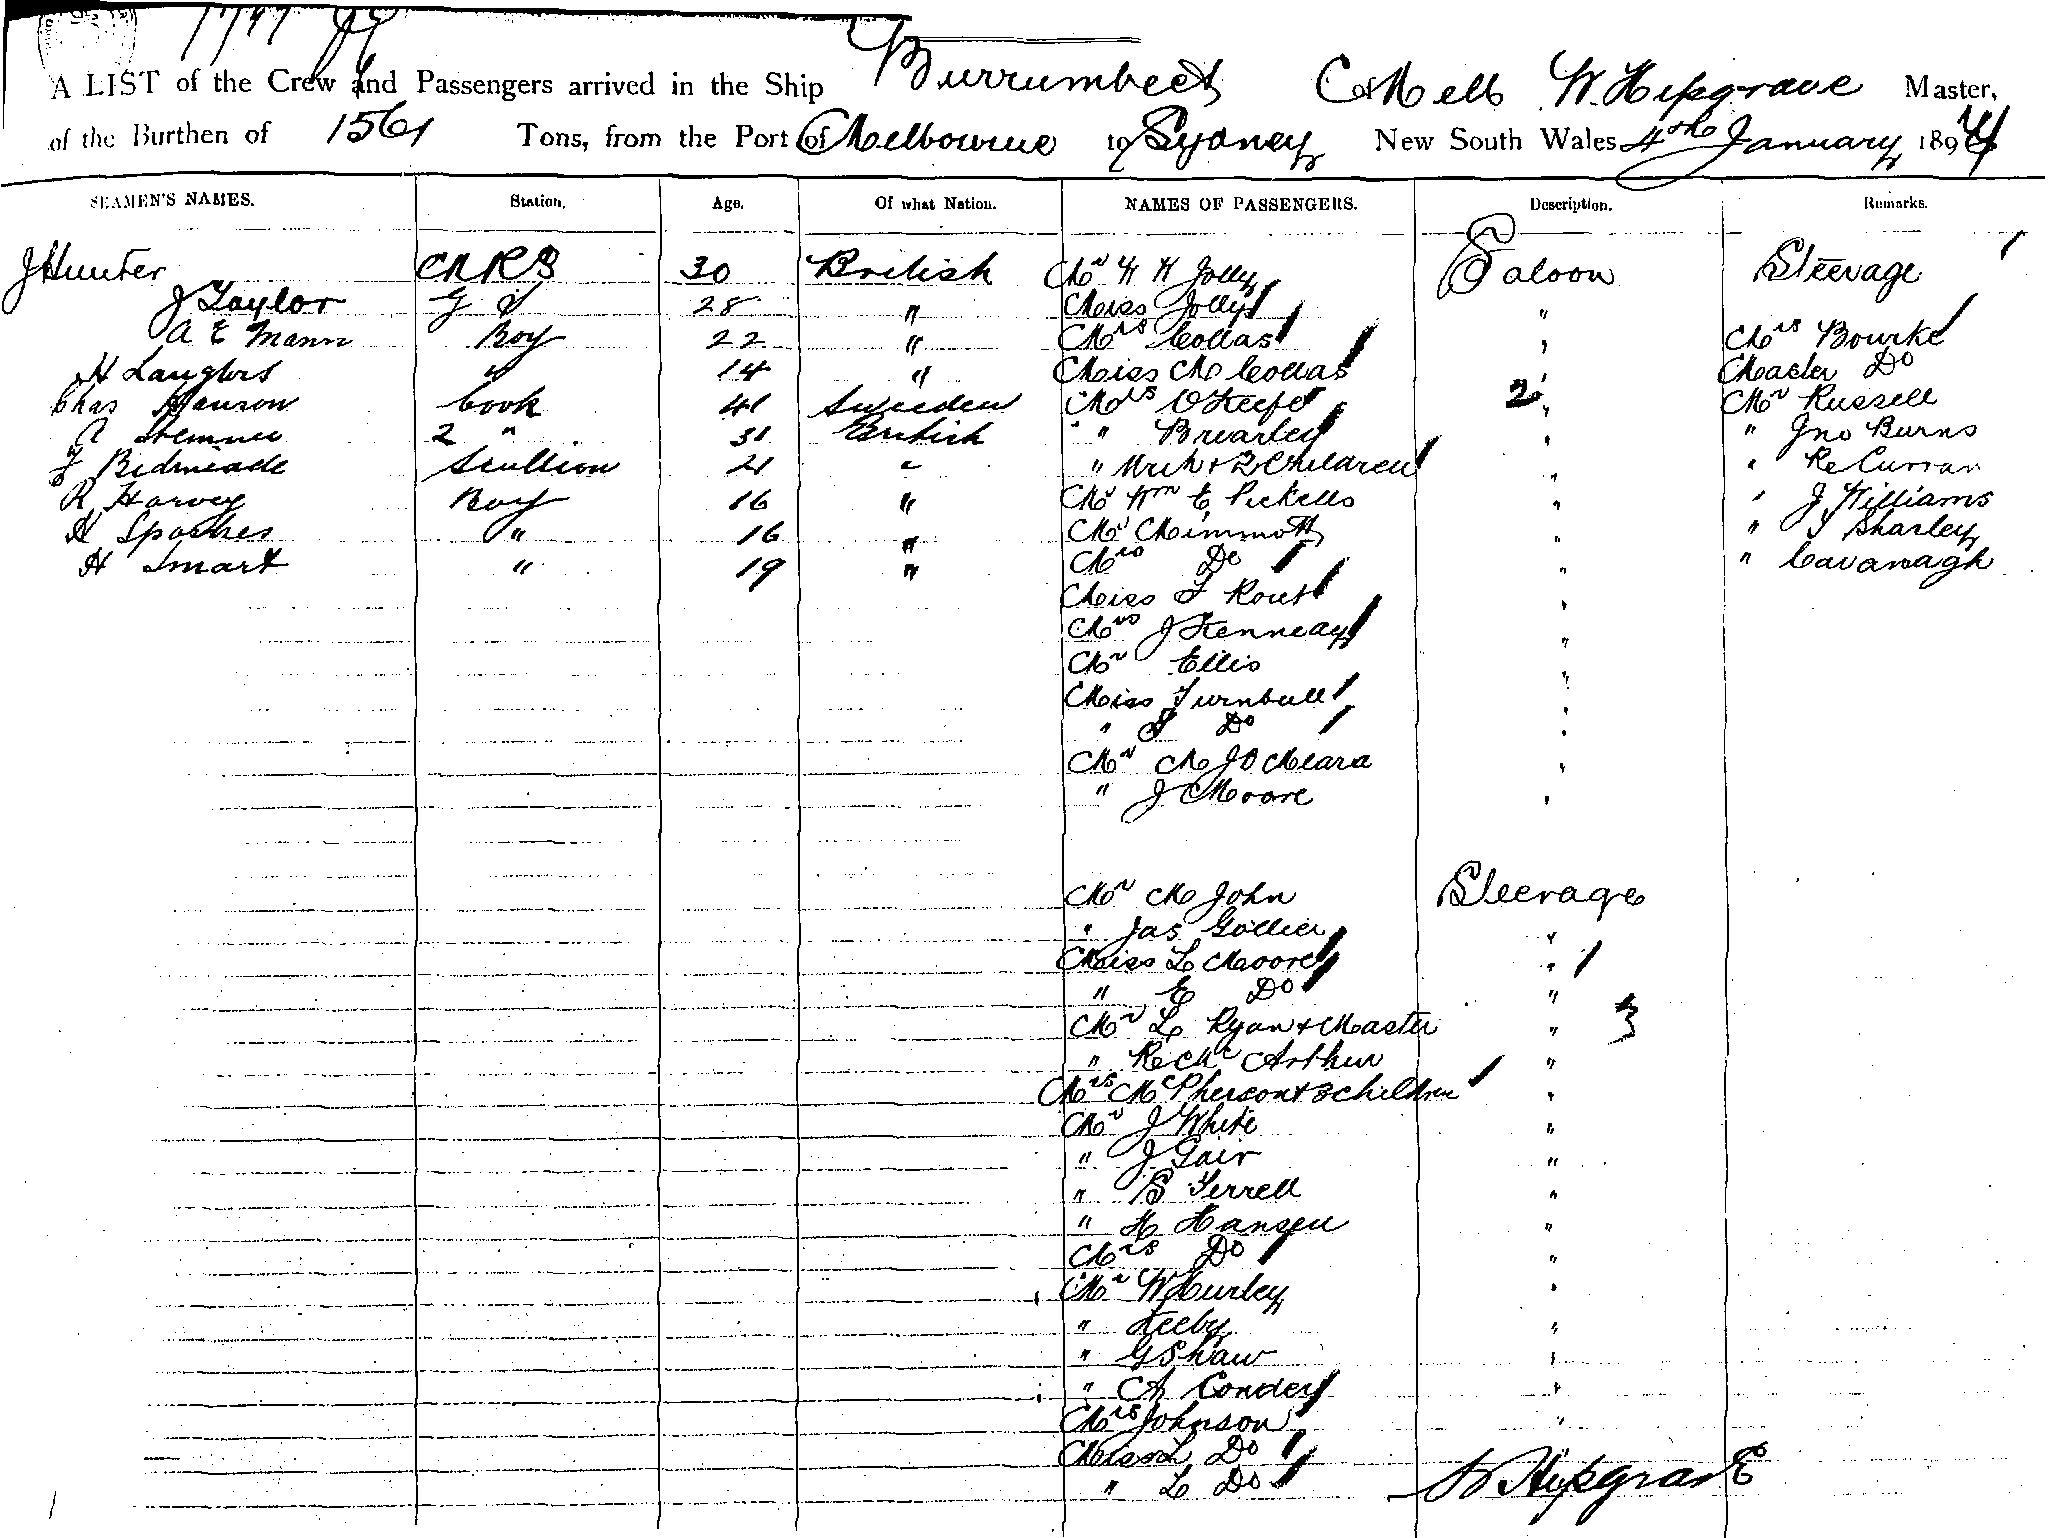 A LIST of the Crew and Passengers arrived in the Ship Burrumbeet of Melb W. Hipgrave Master,
of the Burthen of 1561 Tons, from the Port of Melbourne to Sydney New South Wales 4th January 1894
SEAMEN'S NAMES. Station. Age. Of what Nation. NAMES OF PASSENGERS. Description. Remarks.
J Hunter 30 British Mr H H Jolly Saloon Steerage
J Taylor G S 28 " Miss Jolly "
A E Mann Boy 22 " Mrs Collas " Mrs Bourke
H Langlois " 14 " Miss M Collas " Master Do
Chas Hanson Cook 41 Sweeden Mrs O'Keefe 2 " Mr Russell
A 2 " 31 British " Brearley " " Jno Burns
F Bidmeade Scullion 21 " " & 2 Children " " Re Curran
R Harvey Boy 16 " Mr Wm E Pickells " " J Williams
H Sparkes " 16 " Mr Mimmott " " T Sharley
H Smart " 19 " Mrs Do " " Cavanagh
Miss F Rout "
Mrs J Kenneay "
Mr Ellis "
Miss Turnbull "
" F Do "
Mr M J O'Meara "
" J Moore "
Mr M John Steerage
" Jas Gollier "
Miss L Moore "
" E Do "
Mr L Ryan & Master " 3
" Re McArthur "
Mrs McPherson & 3 children "
Mr J White "
" J Gair "
" S Terrell "
" H Hansen "
Mrs Do "
Mr W Hurley "
" Keeby "
" G Shaw "
" A Condey "
Mrs Johnson "
Miss L Do
" L Do W Hipgrave